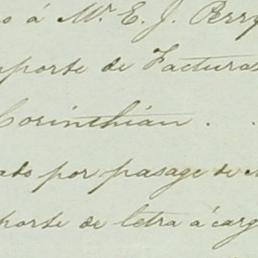 o á Mr. E. J. Perry
mporte de Facturas
Corinthian . .
ado por pasage de
porte de letra á carg